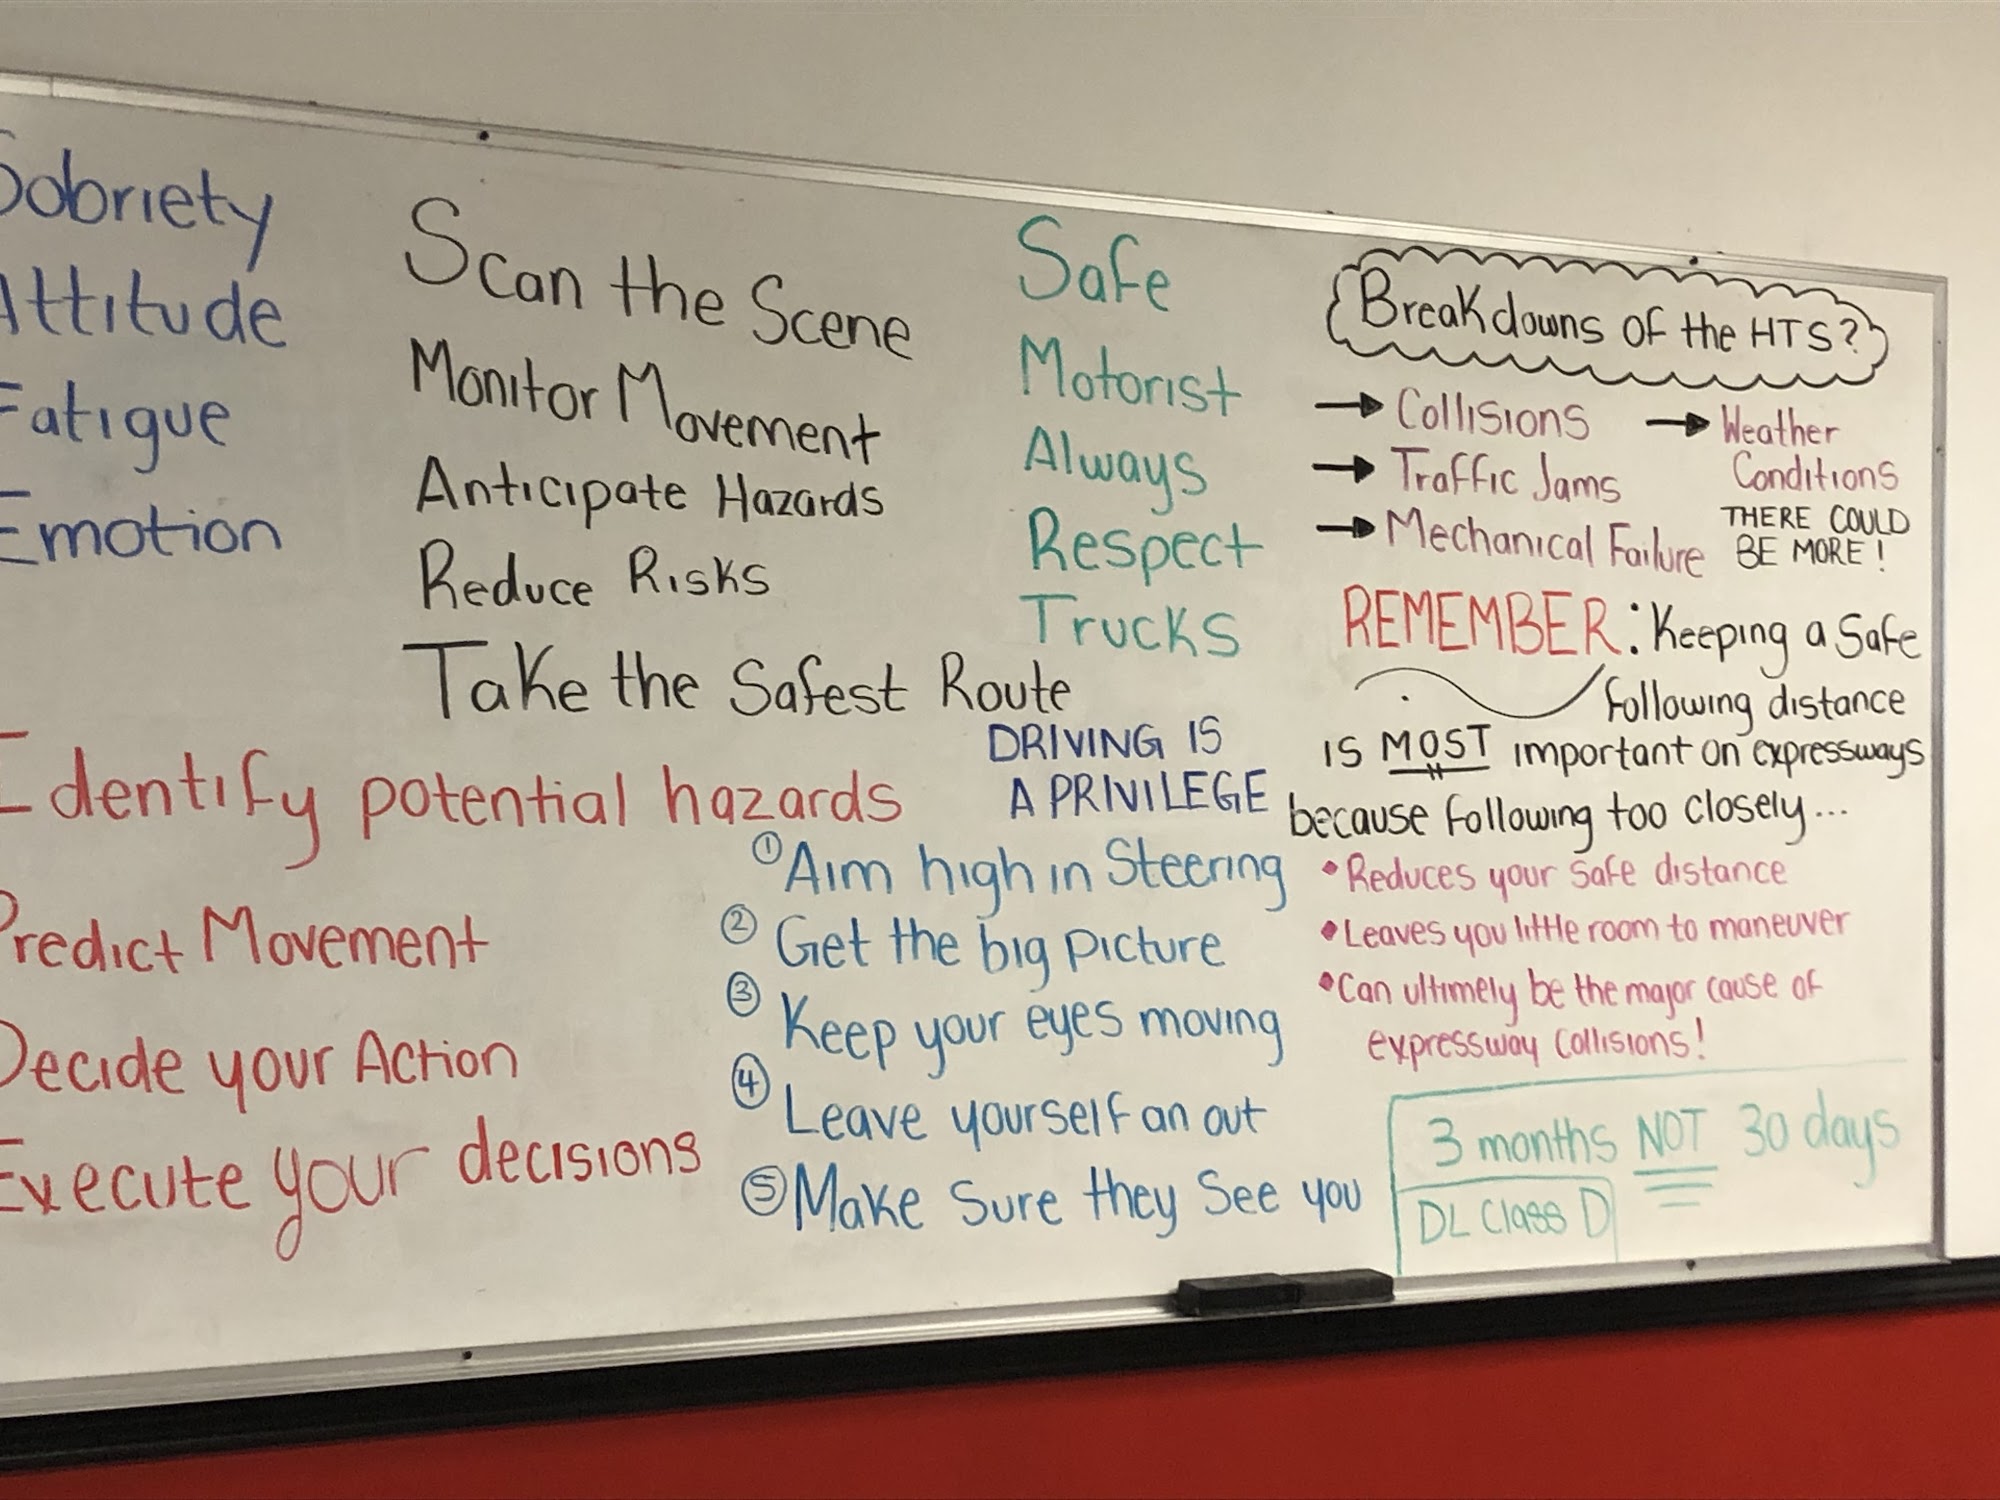 Sobriety
Attitude
Fatigue
Emotion
Scan the Scene
Monitor Movement
Anticipate Hazards
Reduce Risks
Take the Safest Route
Safe
Motorist
Always
Respect
Trucks
Breakdowns of the HTS?
→ Collisions
→ Traffic Jams
→ Mechanical Failure
→ Weather
Conditions
THERE COULD
BE MORE!
REMEMBER: Keeping a safe
following distance
is MOST important on expressways
because following too closely...
• Reduces your safe distance
• Leaves you little room to maneuver
• Can ultimely be the major cause of
expressway collisions!
Identify potential hazards
Predict Movement
Decide your Action
Execute your decisions
DRIVING IS
A PRIVILEGE
① Aim high in Steering
② Get the big picture
③ Keep your eyes moving
④ Leave yourself an out
⑤ Make Sure they See you
3 months NOT 30 days
DL Class D